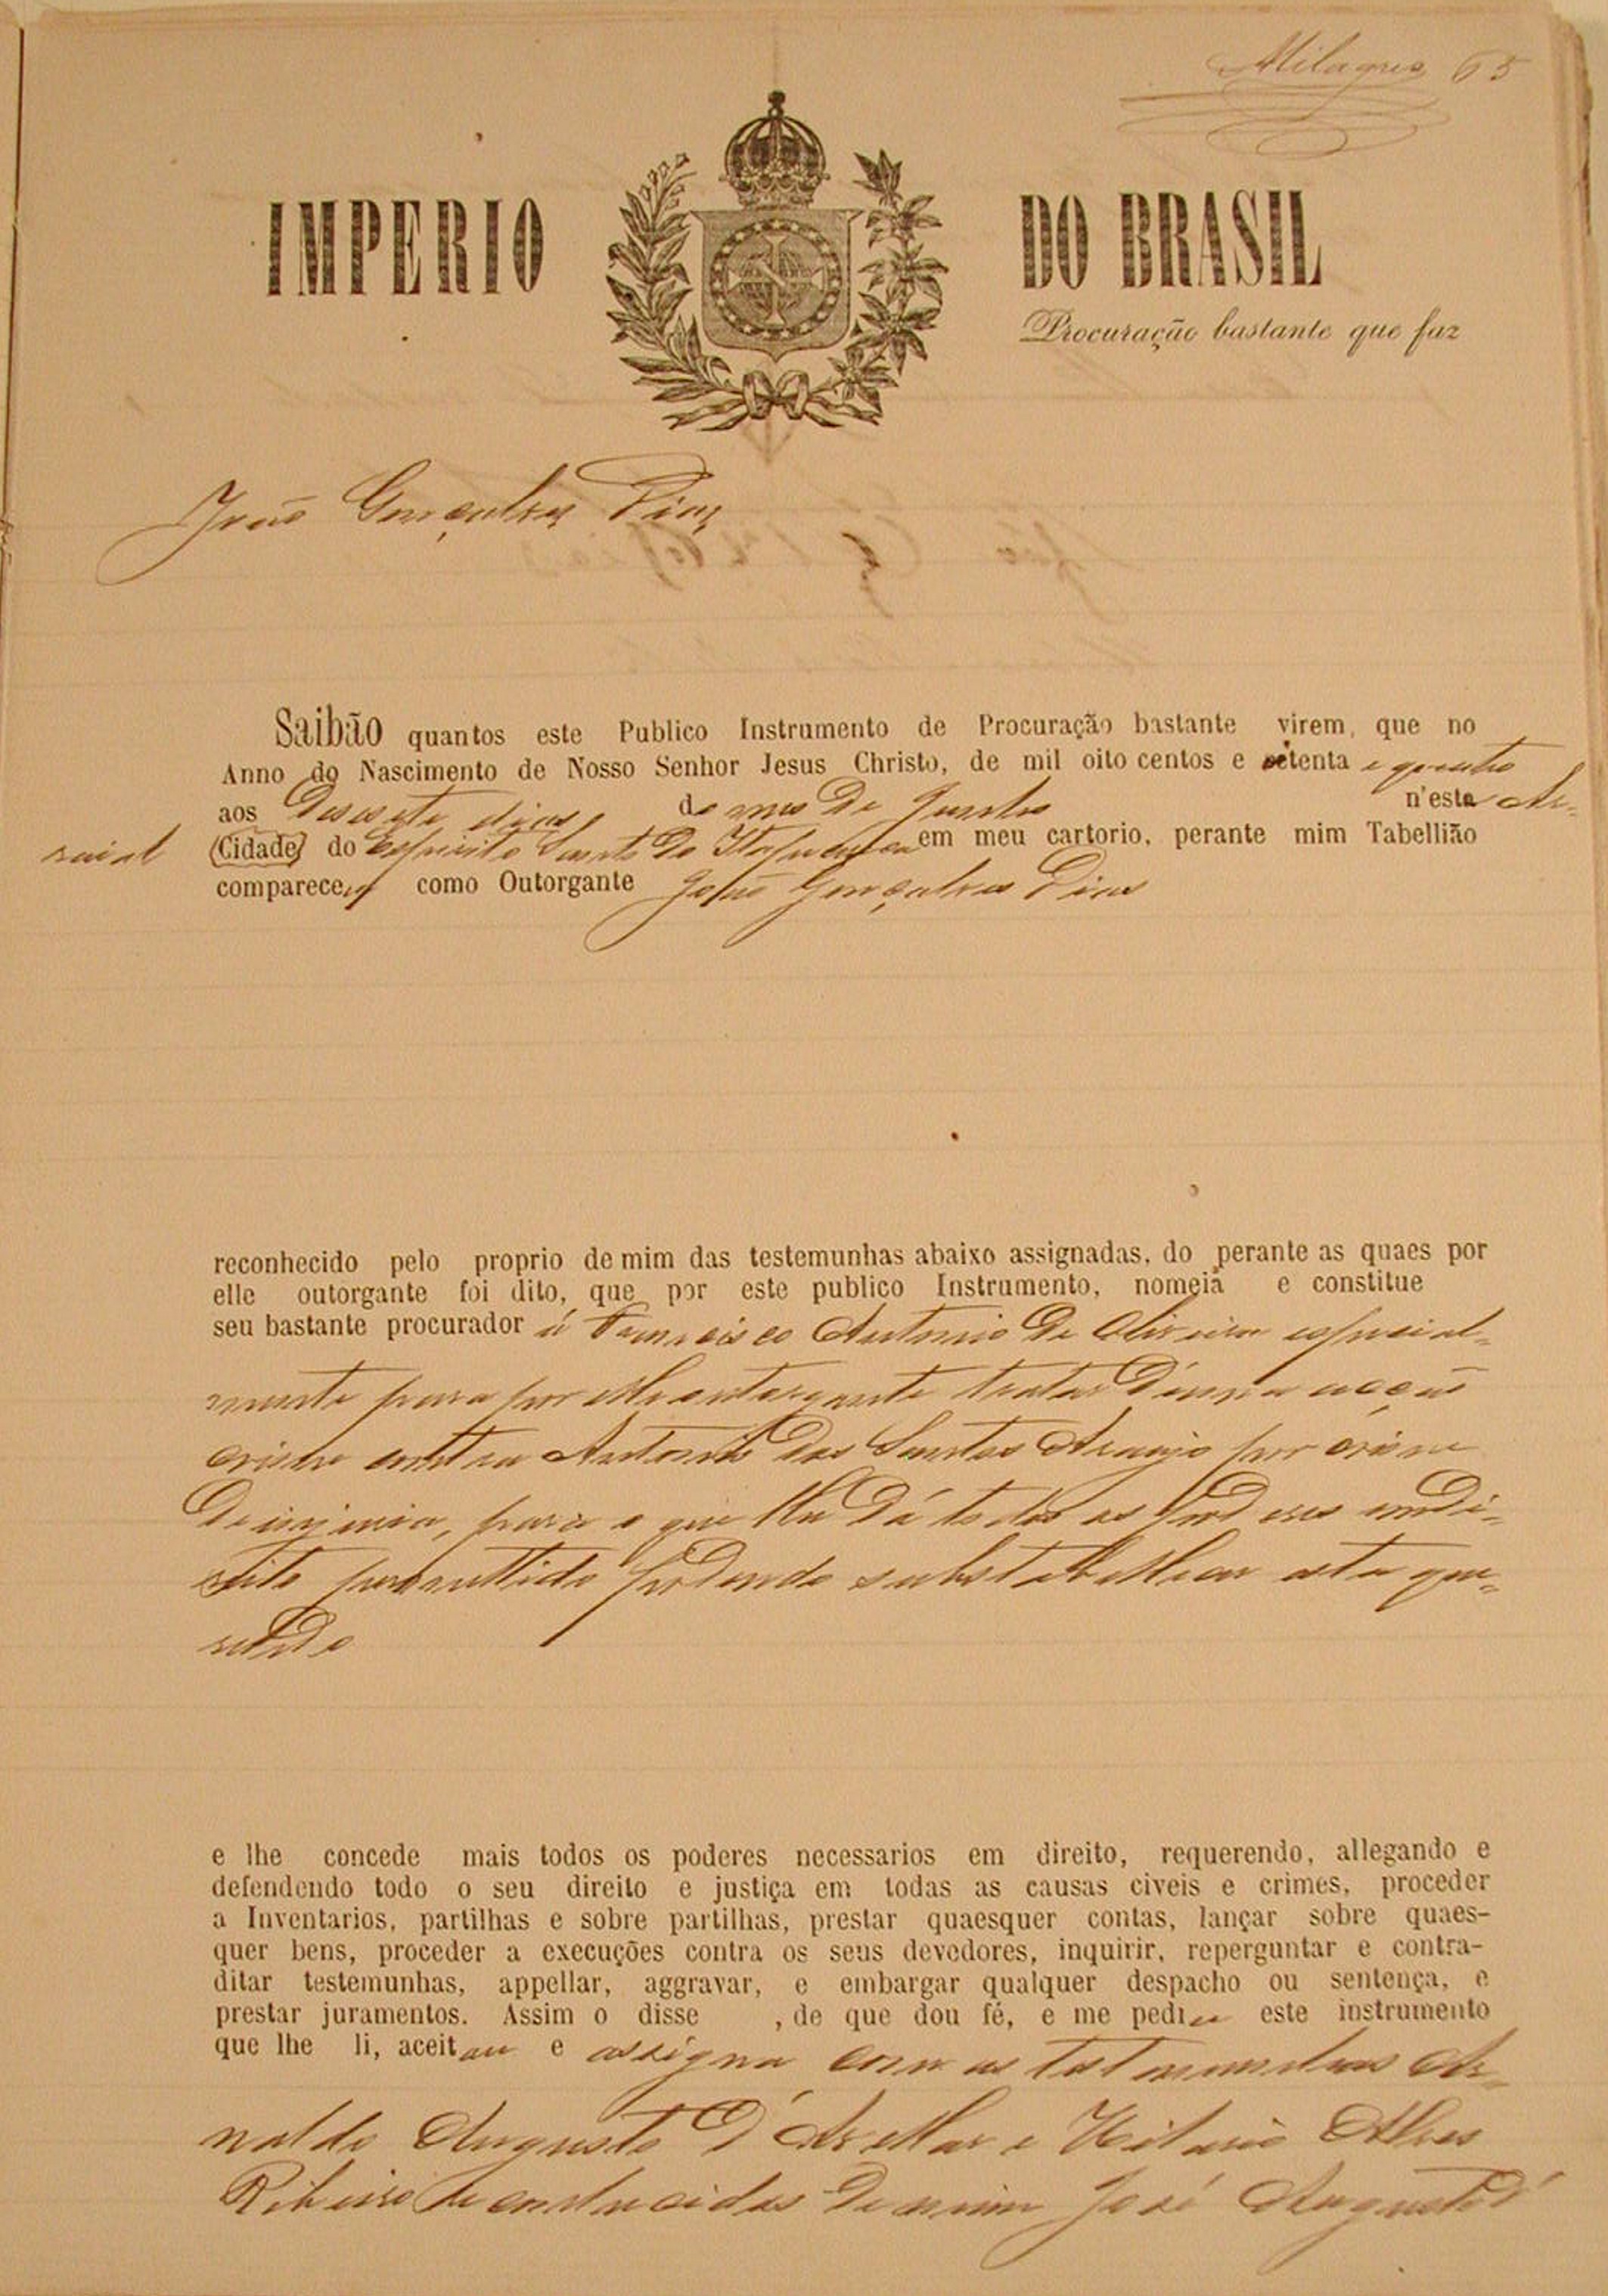 Milagres 65
IMPERIO DO BRASIL
Procuração bastante que faz
João Gonçalves Dias
Saibão quantos este Publico Instrumento de Procuração bastante virem, que no
Anno do Nascimento de Nosso Senhor Jesus Christo, de mil oito centos e setenta e quatro
aos desesete dias do mes de Junho n'este Ar-
raial (Cidade) do Espirito Santo de Itapecerica em meu cartorio, perante mim Tabellião
compareceu como Outorgante João Gonçalves Dias
reconhecido pelo proprio de mim das testemunhas abaixo assignadas, do perante as quaes por
elle outorgante foi dito, que por este publico Instrumento, nomeiã e constitue
seu bastante procurador á Francisco Antonio de Oliveira especial-
mente para por elle outorgante tratar d'uma acção
crime contra Antonio dos Santos Araujo por crime
de injuria, para o que lhe dá todos os poderes em di-
reito permittido podendo substabellecer esta que-
rendo
e lhe concede mais todos os poderes necessarios em direito, requerendo, allegando e
defendendo todo o seu direito e justiça em todas as causas civeis e crimes, proceder
a Inventarios, partilhas e sobre partilhas, prestar quaesquer contas, lançar sobre quaes-
quer bens, proceder a execuções contra os seus devedores, inquirir, reperguntar e contra-
ditar testemunhas, appellar, aggravar, e embargar qualquer despacho ou sentença, e
prestar juramentos. Assim o disse , de que dou fé, e me pediu este instrumento
que lhe li, aceitou e assigna com as testemunhas Ar-
naldo Augusto d'Avellar e Hilario Alves
Ribeiro reconhecidas de mim José Augusto d'